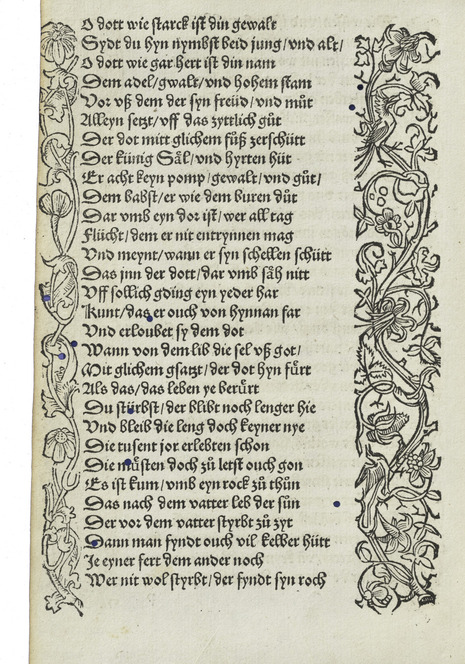 O dott wie starck ist din gewalt
Sydt du hyn nymbst beid jung/vnd alt/
O dott wie gar hert ist din nam
Dem adel/gwalt/vnd hohem stam
Vor vß dem der syn freüd/vnd můt
Alleyn setzt/vff das zyttlich gůt
Der dot mitt glichem fůß zerschütt
Der künig Säl/vnd hyrten hüt
Er acht keyn pomp/gewalt/vnd gůt/
Dem babst/er wie dem buren důt
Dar vmb eyn dor ist/wer all tag
Flücht/dem er nit entrynnen mag
Vnd meynt/wann er syn schellen schütt
Das jnn der dott/dar vmb säh nitt
Vff sollich gding eyn yeder har
Kunt/das er ouch von hynnan far
Vnd erloubet sy dem dot
Wann von dem lib die sel vß got/
Mit glichem gsatzt/der dot hyn fürt
Als das/das leben ye berürt
Du stürbst/der blibt noch lenger hie
Vnd bleib die leng doch keyner nye
Die tusent jor erlebten schon
Die müsten doch zů letst ouch gon
Es ist kum/vmb eyn rock zů thůn
Das nach dem vatter leb der sůn
Der vor dem vatter styrbt zů zyt
Dann man fyndt ouch vil kelber hütt
Je eyner fert dem ander noch
Wer nit wol styrbt/der fyndt syn roch